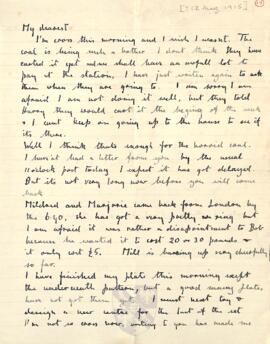 [? 12 May 1915]
My dearest.
I'm cross this morning and I wish I wasn't. The
coal is being such a bother I don't think they have
carted it yet and we shall have an awfull lot to
pay at the station, I have just written again to ask
them when they are going to. I am so sorry I am
afraid I am not doing it well, but they told
Harry they would cart it the begining of the week
& I cant keep on going up to the house to see if
its there.
Well I think thats enough for the horrid coal.
I havn't had a letter from you by the usual
o'clock post today I expect it has got delayed.
But its not very long now before you will come
back
Mildred and Marjorie came back from London by
the 6.40, she has got a very pretty ring but
I am afraid it was rather a disappointment to Bob
because he wanted it to cost 20 or 30 pounds &
it only cost £5. Mill is bearing up very cheerfully
so far.
I have finished my plate this morning except
the underneath portion, but a good many plates,
have not got them I must next try &
design a new center for the rest of the set
I'm not so cross now, writing to you has made me